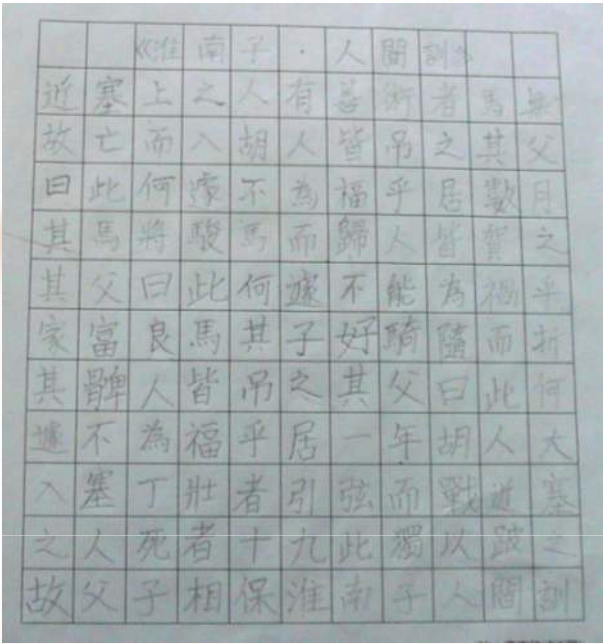 《淮南子·人間訓》
近塞上之人有善術者馬無
故亡而入胡人皆吊之其父
曰此何遽不為福乎居數月
其馬將駿馬而歸人皆賀之
其父曰此何遽不能為禍乎
家富良馬其子好騎墮而折
其髀人皆吊之其父曰此何
遽不為福乎居一年胡人大
入塞丁壯者引弦而戰近塞
之人死者十九此獨以跛之
故父子相保淮南子人間訓